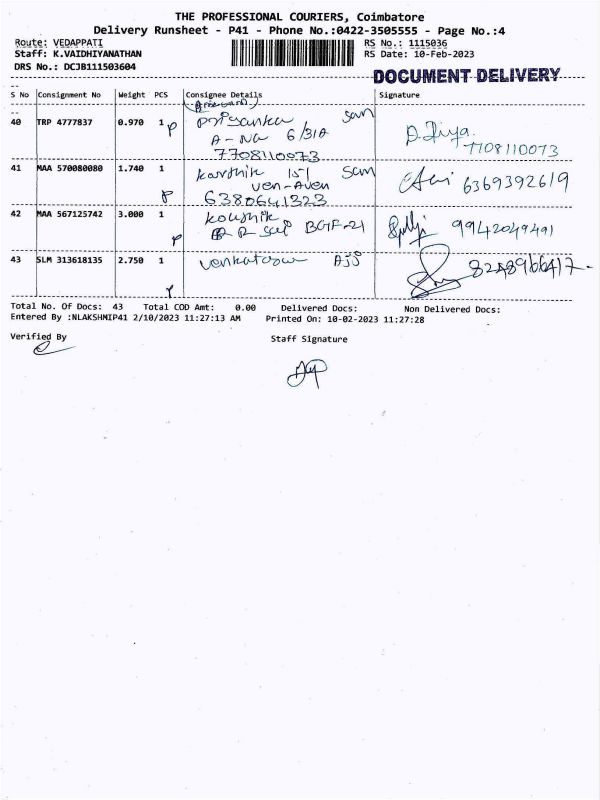 THE PROFESSIONAL COURIERS, Coimbatore
Delivery Runsheet - P41 - Phone No.:0422-3505555 - Page No.:4
Route: VEDAPPATI RS No.: 1115036
Staff: K.VAIDHIYANATHAN RS Date: 10-Feb-2023
DRS No.: DCJB111503604
DOCUMENT DELIVERY
S No Consignment No Weight PCS Consignee Details Signature
40 TRP 4777837 0.970 1 P Priyanka Sam
A-Na 6/31A
7708110073
D. Jiya. 7708110073
41 MAA 570080080 1.740 1 P Karthik 151 Sam
Ven-Aven
6380641323
6369392619
42 MAA 567125742 3.000 1 P Koushik
BGF-21
9942049491
43 SLM 313618135 2.750 1 P
8248966417
Total No. Of Docs: 43 Total COD Amt: 0.00 Delivered Docs: Non Delivered Docs:
Entered By :NLAKSHMIP41 2/10/2023 11:27:13 AM Printed On: 10-02-2023 11:27:28
Verified By Staff Signature